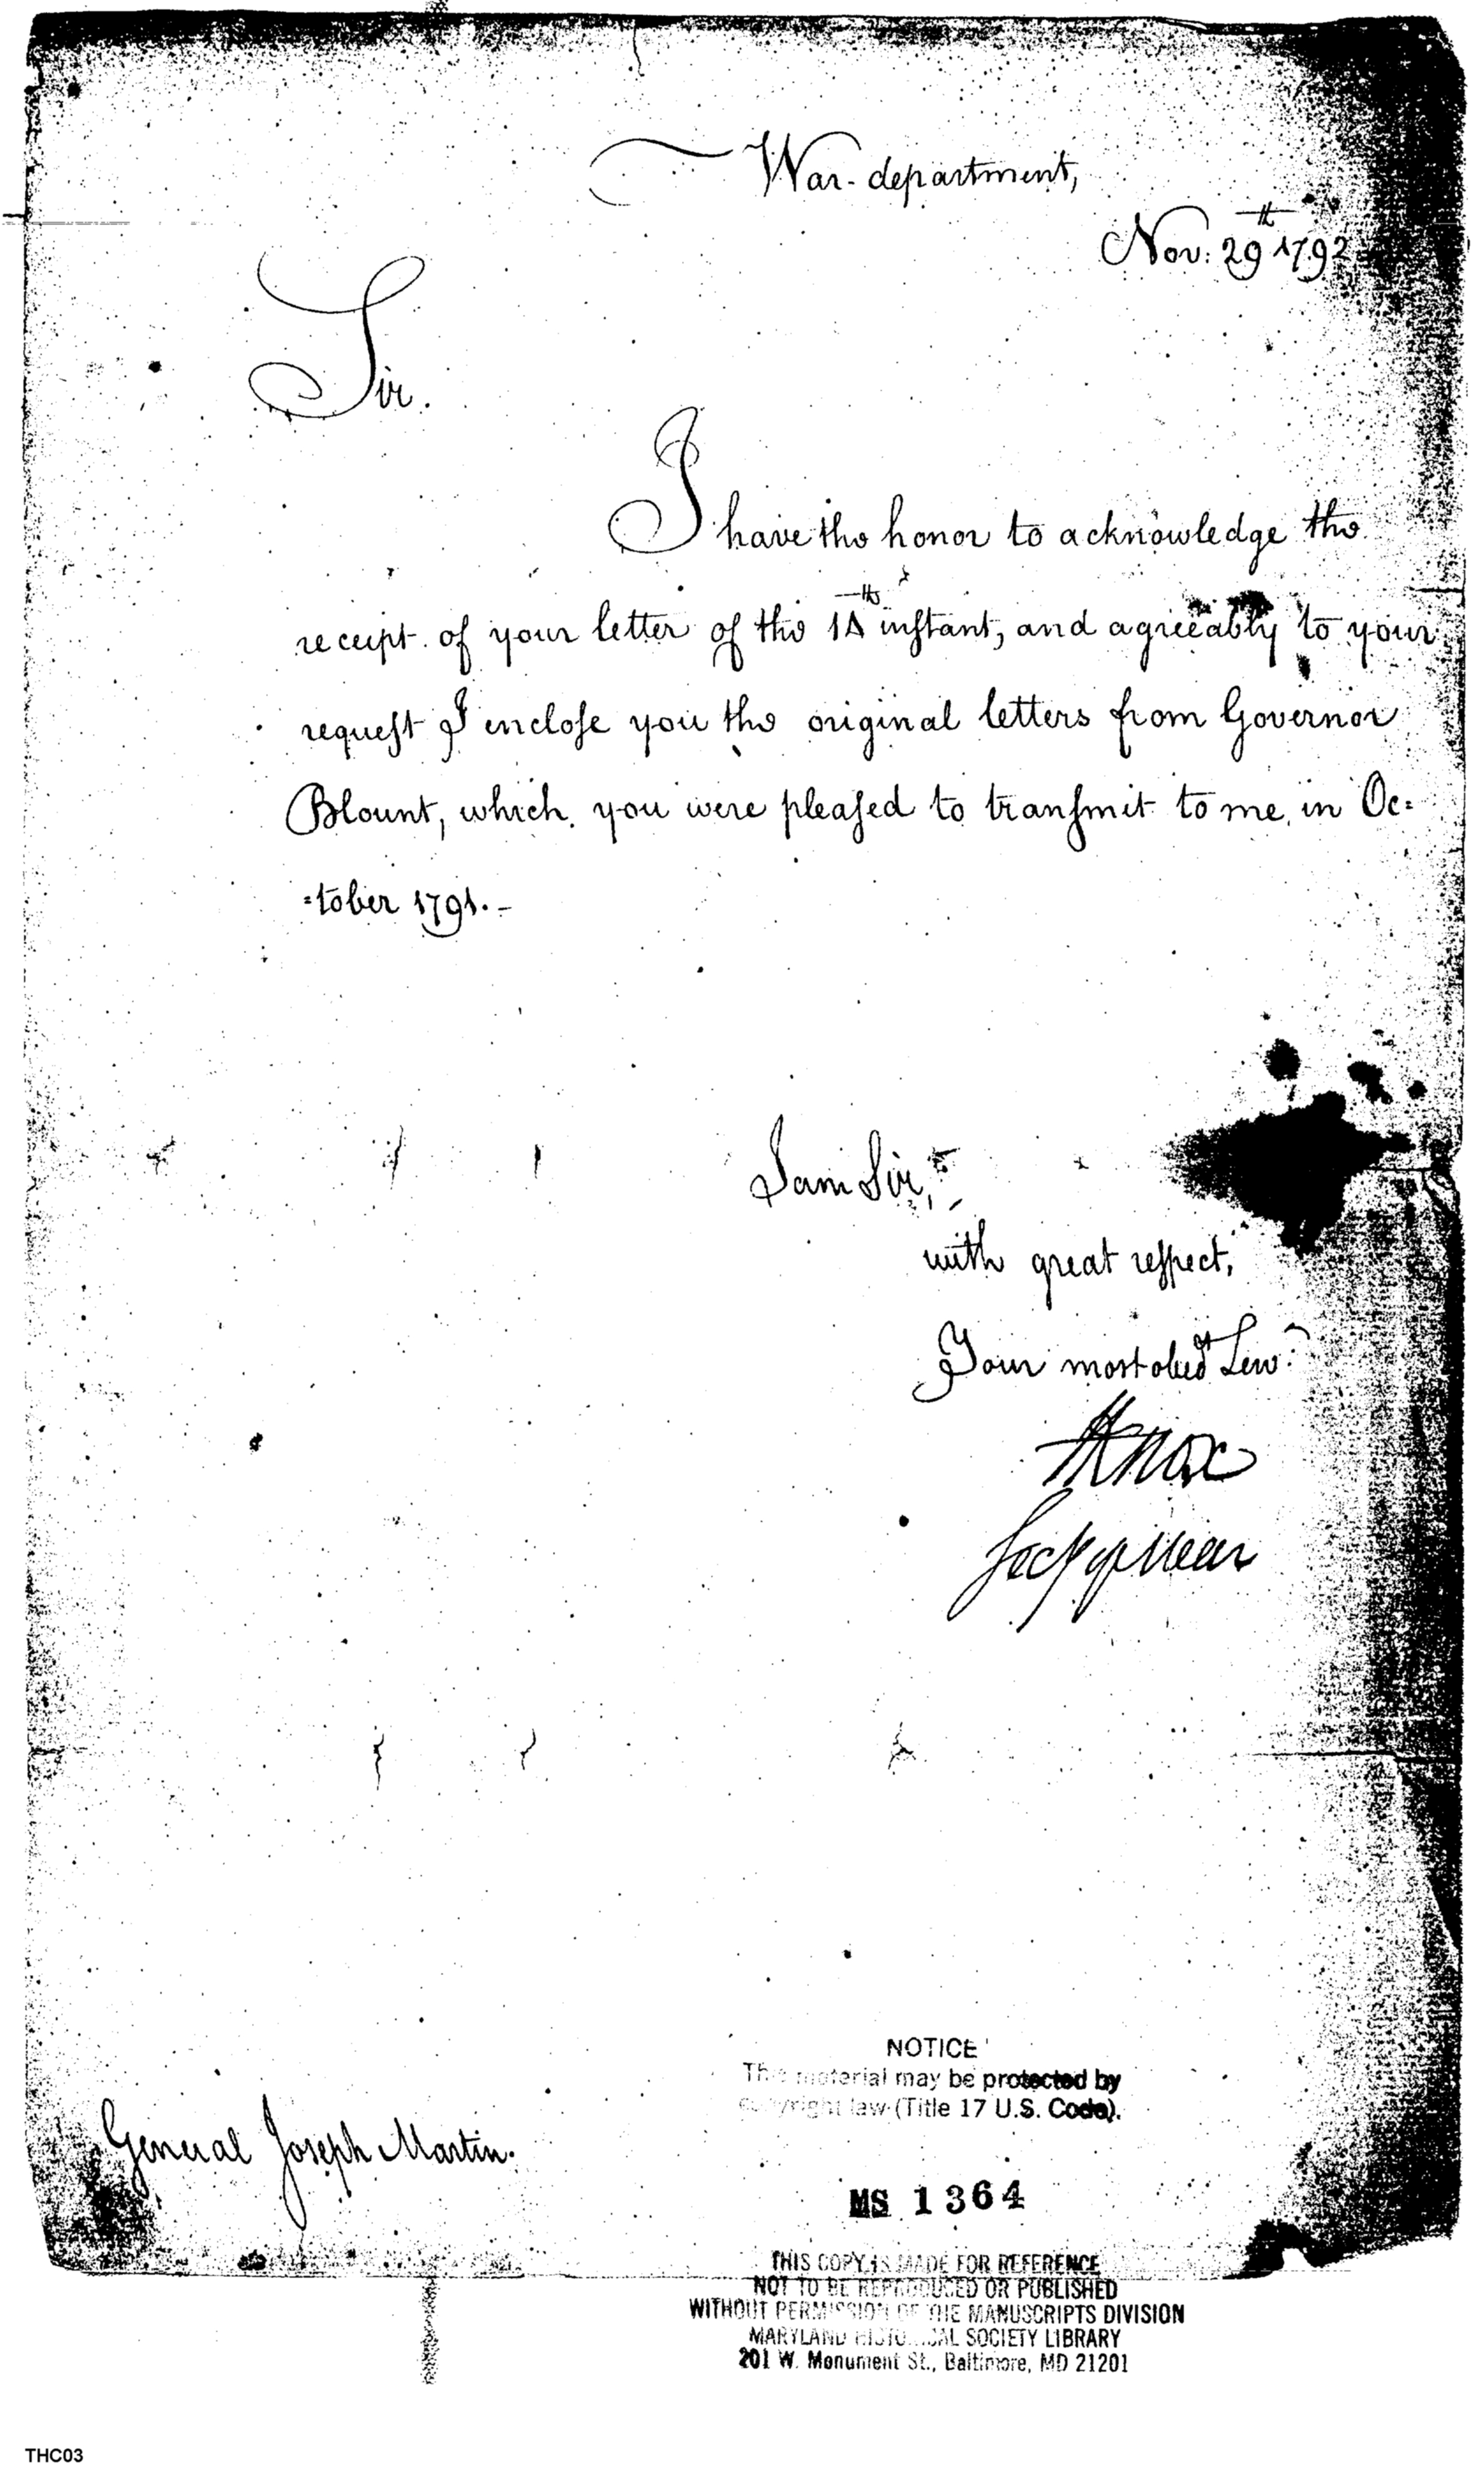 War-department,
Nov: 29th 1792
Sir.
I have the honor to acknowledge the
receipt of your letter of the 14th instant, and agreeably to your
request I enclose you the original letters from Governor
Blount, which you were pleased to transmit to me, in Oc=
=tober 1791.-
I am Sir,
with great respect,
Your most obedt Serv.
HKnox
Secy of War
NOTICE
This material may be protected by
copyright law (Title 17 U.S. Code).
General Joseph Martin.
MS 1364
THIS COPY IS MADE FOR REFERENCE
NOT TO BE REPRODUCED OR PUBLISHED
WITHOUT PERMISSION OF THE MANUSCRIPTS DIVISION
MARYLAND HISTORICAL SOCIETY LIBRARY
201 W. Monument St., Baltimore, MD 21201
THC03